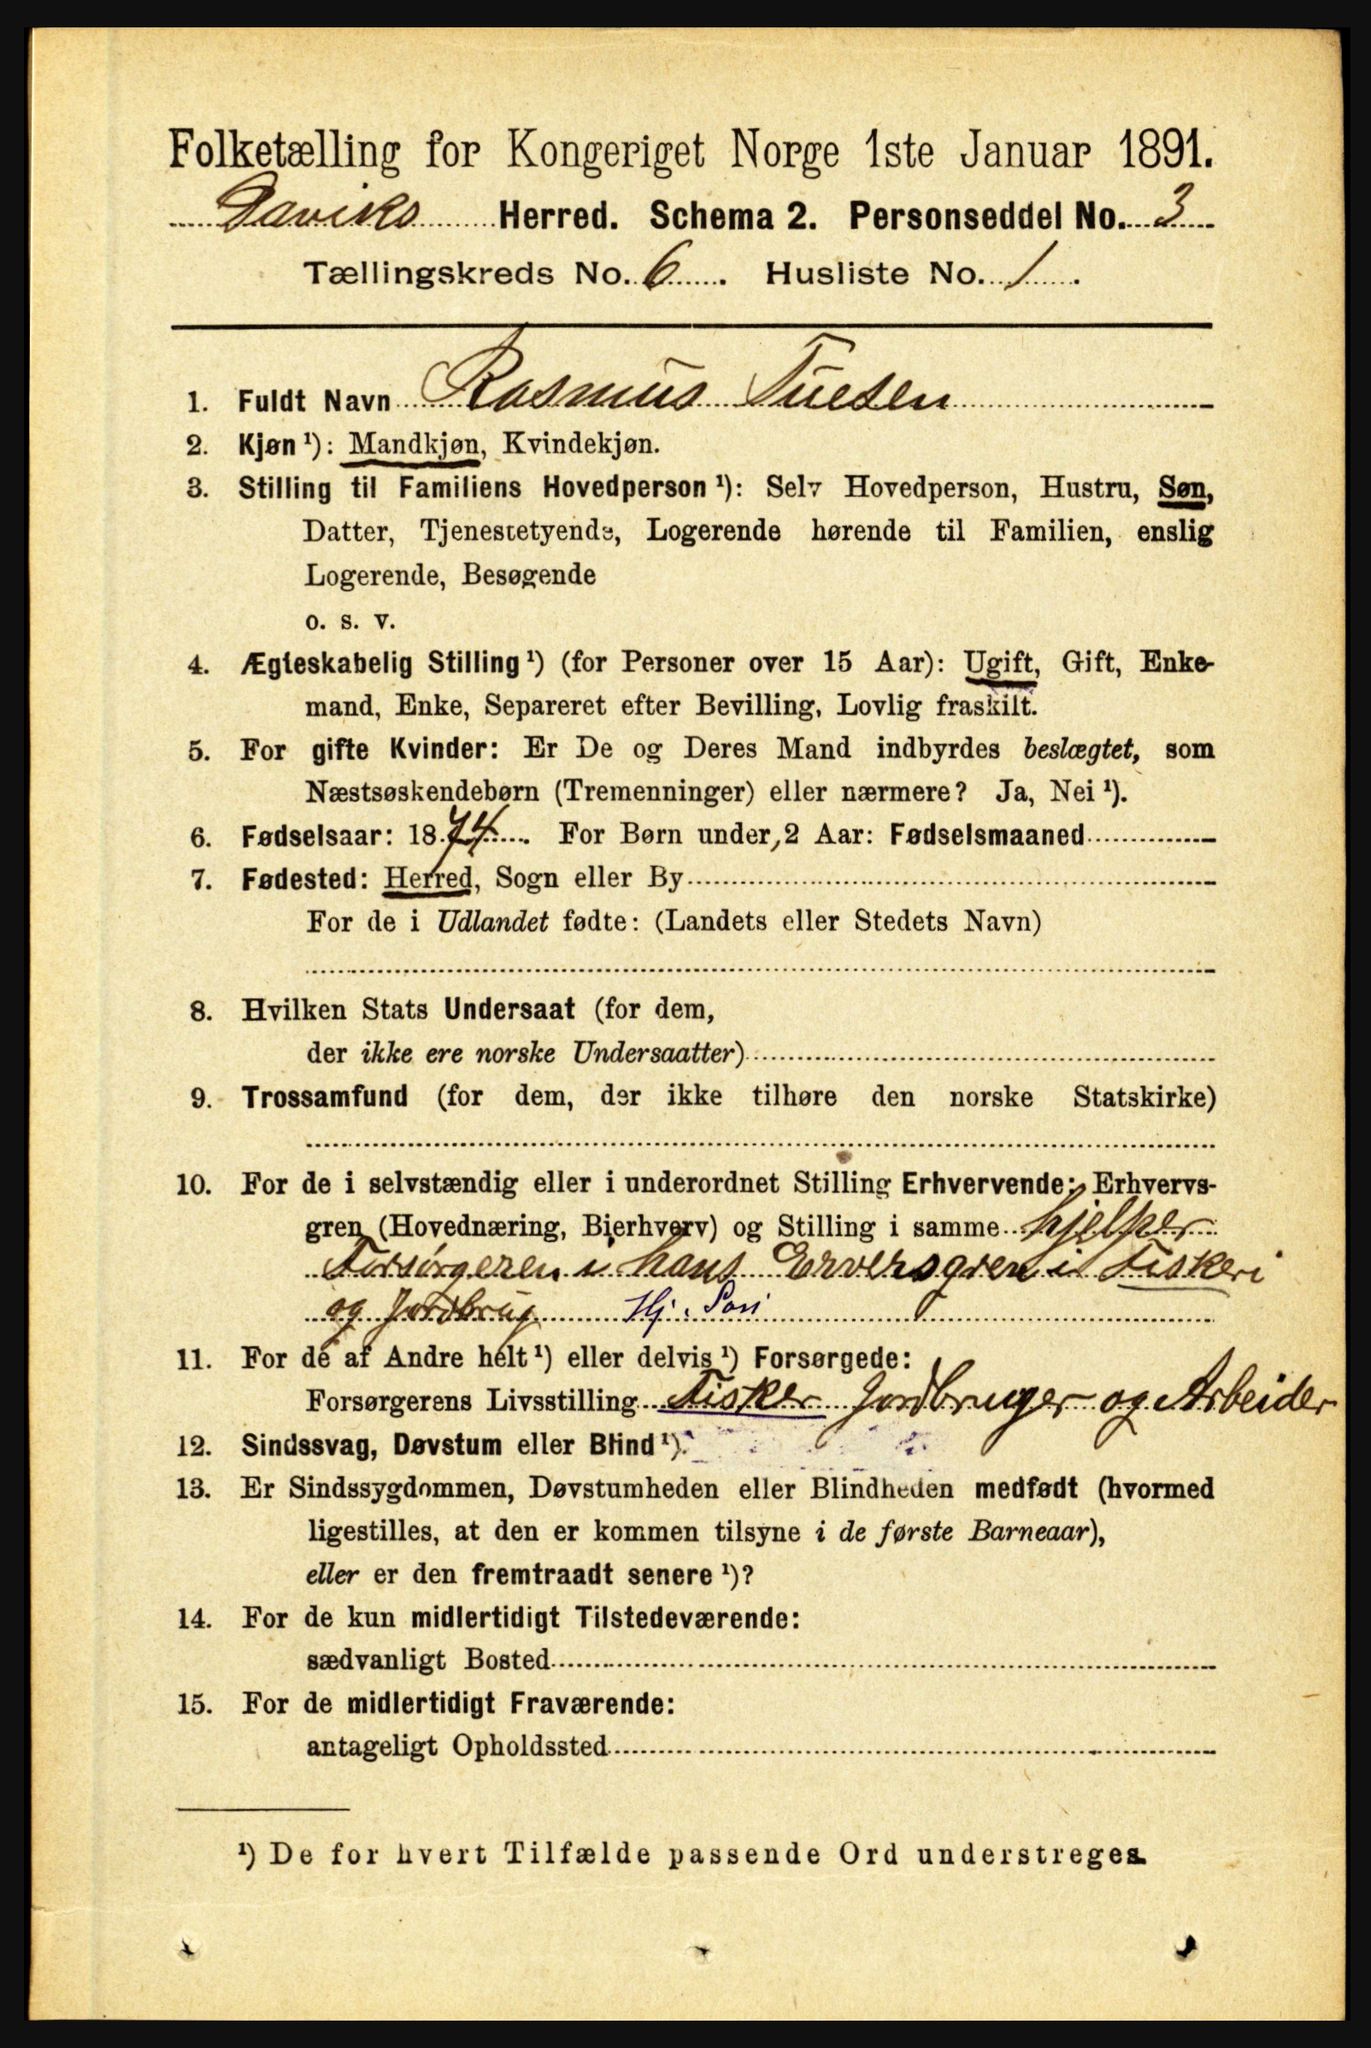 Folketælling for Kongeriget Norge 1ste Januar 1891.
Daviks Herred. Schema 2. Personseddel No. 3
Tællingskreds No. 6. Husliste No. 1.
1. Fuldt Navn Rasmus Tuesen
2. Kjøn ¹): Mandkjøn, Kvindekjøn.
3. Stilling til Familiens Hovedperson ¹): Selv Hovedperson, Hustru, Søn,
Datter, Tjenestetyende, Logerende hørende til Familien, enslig
Logerende, Besøgende
o. s. v.
4. Ægteskabelig Stilling ¹) (for Personer over 15 Aar): Ugift, Gift, Enke-
mand, Enke, Separeret efter Bevilling, Lovlig fraskilt.
5. For gifte Kvinder: Er De og Deres Mand indbyrdes beslægtet, som
Næstsøskendebørn (Tremenninger) eller nærmere? Ja, Nei ¹).
6. Fødselsaar: 1874. For Børn under 2 Aar: Fødselsmaaned
7. Fødested: Herred, Sogn eller By
For de i Udlandet fødte: (Landets eller Stedets Navn)
8. Hvilken Stats Undersaat (for dem,
der ikke ere norske Undersaatter)
9. Trossamfund (for dem, der ikke tilhøre den norske Statskirke)
10. For de i selvstændig eller i underordnet Stilling Erhvervende: Erhvervs-
gren (Hovednæring, Bierhverv) og Stilling i samme hjelper
Forsørgeren i hans Erversgren i Fiskeri
og Jordbrug Hj.
11. For de af Andre helt ¹) eller delvis ¹) Forsørgede:
Forsørgerens Livsstilling Fisker Jordbruger og Arbeider
12. Sindssvag, Døvstum eller Blind ¹).
13. Er Sindssygdommen, Døvstumheden eller Blindheden medfødt (hvormed
ligestilles, at den er kommen tilsyne i de første Barneaar),
eller er den fremtraadt senere ¹)?
14. For de kun midlertidigt Tilstedeværende:
sædvanligt Bosted
15. For de midlertidigt Fraværende:
antageligt Opholdssted
¹) De for hvert Tilfælde passende Ord understreges.